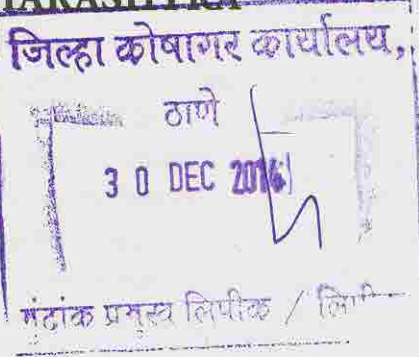 जिल्हा कोषागर कार्यालय,
ठाणे
30 DEC 2014
मुंद्रांक प्रमुख लिपीक /